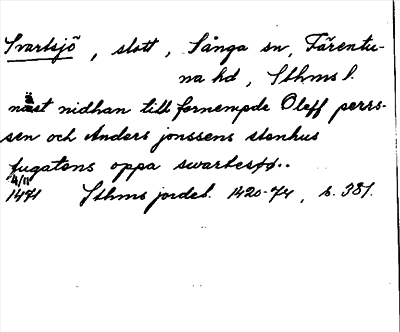 Svartsjö, slott, Sånga sn, Färentu-
na hd, Sthms l.
näst nidhan till fornempde Oleff perss-
sen och Anders jonssens stenhus
fugatens oppa swartesøø..
4/11
1471 Sthms jordeb. 1420-74, s. 381.